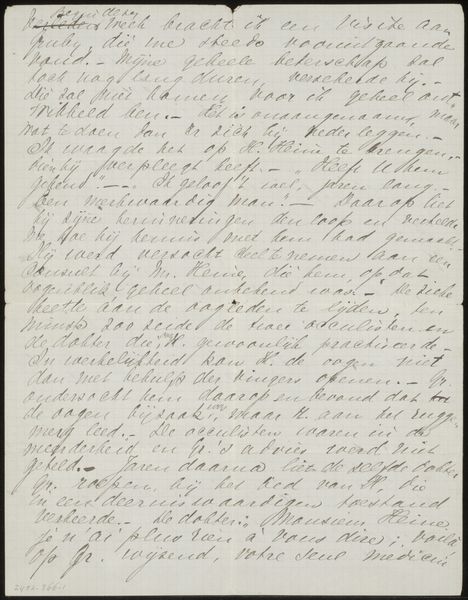 begin dezer
Verleden week bracht ik een visite aan
Gruby, die me steeds vooruitgaande
vond. – Mijne geheele beterschap zal
toch nog lang duren, verzekerde hij. –
Die zal niet komen voor ik geheel ont-
wikkeld ben. – Dit is onaangenaam, maar
wat te doen dan er zich bij neder leggen. –
Ik waagde het op H. Heine te brengen,
dien hij verpleegt heeft. – "Heeft U hem
gekend". – – "Ik geloof 't wel, jaren lang. –
Een merkwaardig man" – Daarop liet
hij zijne herinneringen den loop en vertelde
hoe hij kennis met hem had gemaakt.
Hij werd verzocht deel te nemen aan een
consult bij Mr. Heine, die hem op dat
oogenblik geheel onbekend was. – De zieke
heette aan de oogleden te lijden, ten
minste zoo zeide de twee occulisten en
de dokter die H. gewoonlijk practiseerde. –
In werkelijkheid kon H. de oogen niet
dan met behulp der vingers openen. – Gr.
onderzocht hem daarop en bevond dat
de oogen bijzaak, maar H. aan het rugge-
merg leed. – De occulisten waren in de
meerderheid en Gr.'s advies werd niet
geteld. – Jaren daarna liet de zelfde dokter
Gr. roepen bij het bed van H. die
in een deerniswaardigen toestand
verkeerde. – De dokter: "Monsieur Heine,
je n'ai plus rien à vous dire; voilà
op Gr. wijzend, votre seul medicin